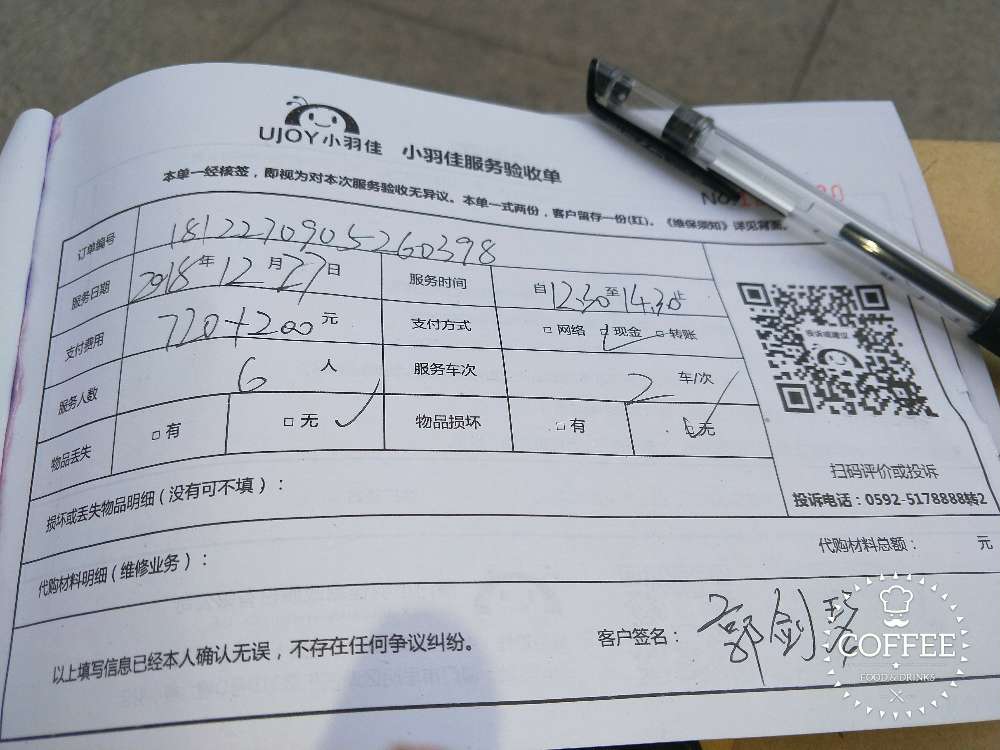 UJOY小羽佳 小羽佳服务验收单
本单一经核签，即视为对本次服务验收无异议。本单一式两份，客户留存一份(红)。《维保须知》详见背面。
No.
订单编号 1812270905260398
服务日期 2018年12月27日 服务时间 自12.30至14.30止
支付费用 720+200元 支付方式 □网络 □现金 □转账
服务人数 6人 服务车次 2车/次
物品丢失 □有 □无 物品损坏 □有 □无
投诉或建议
扫码评价或投诉
投诉电话：0592-5178888转2
损坏或丢失物品明细（没有可不填）：
代购材料明细（维修业务）：
代购材料总额： 元
以上填写信息已经本人确认无误，不存在任何争议纠纷。
客户签名：郭剑
COFFEE
FOOD & DRINKS